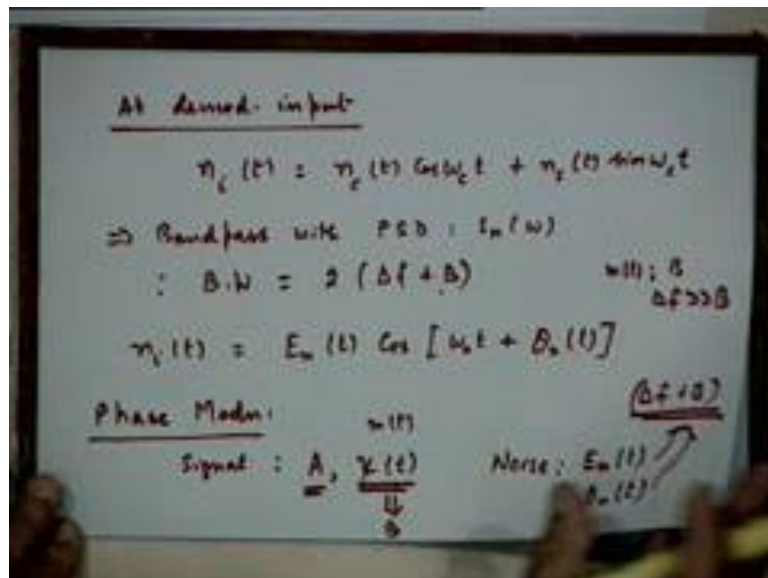 At demod. input
n_i(t) = n_c(t) Cos ω_c t + n_s(t) sin ω_c t
⇒ Bandpass with PSD : S_n(ω)
: B.W = 2 (Δf + B)
m(t) : B
Δf >> B
n_i(t) = E_n(t) Cos [ω_c t + θ_n(t)]
Phase Modn.
(Δf + B)
m(t)
Signal : A, ψ(t)
Noise : E_n(t)
θ_n(t)
⇓
B